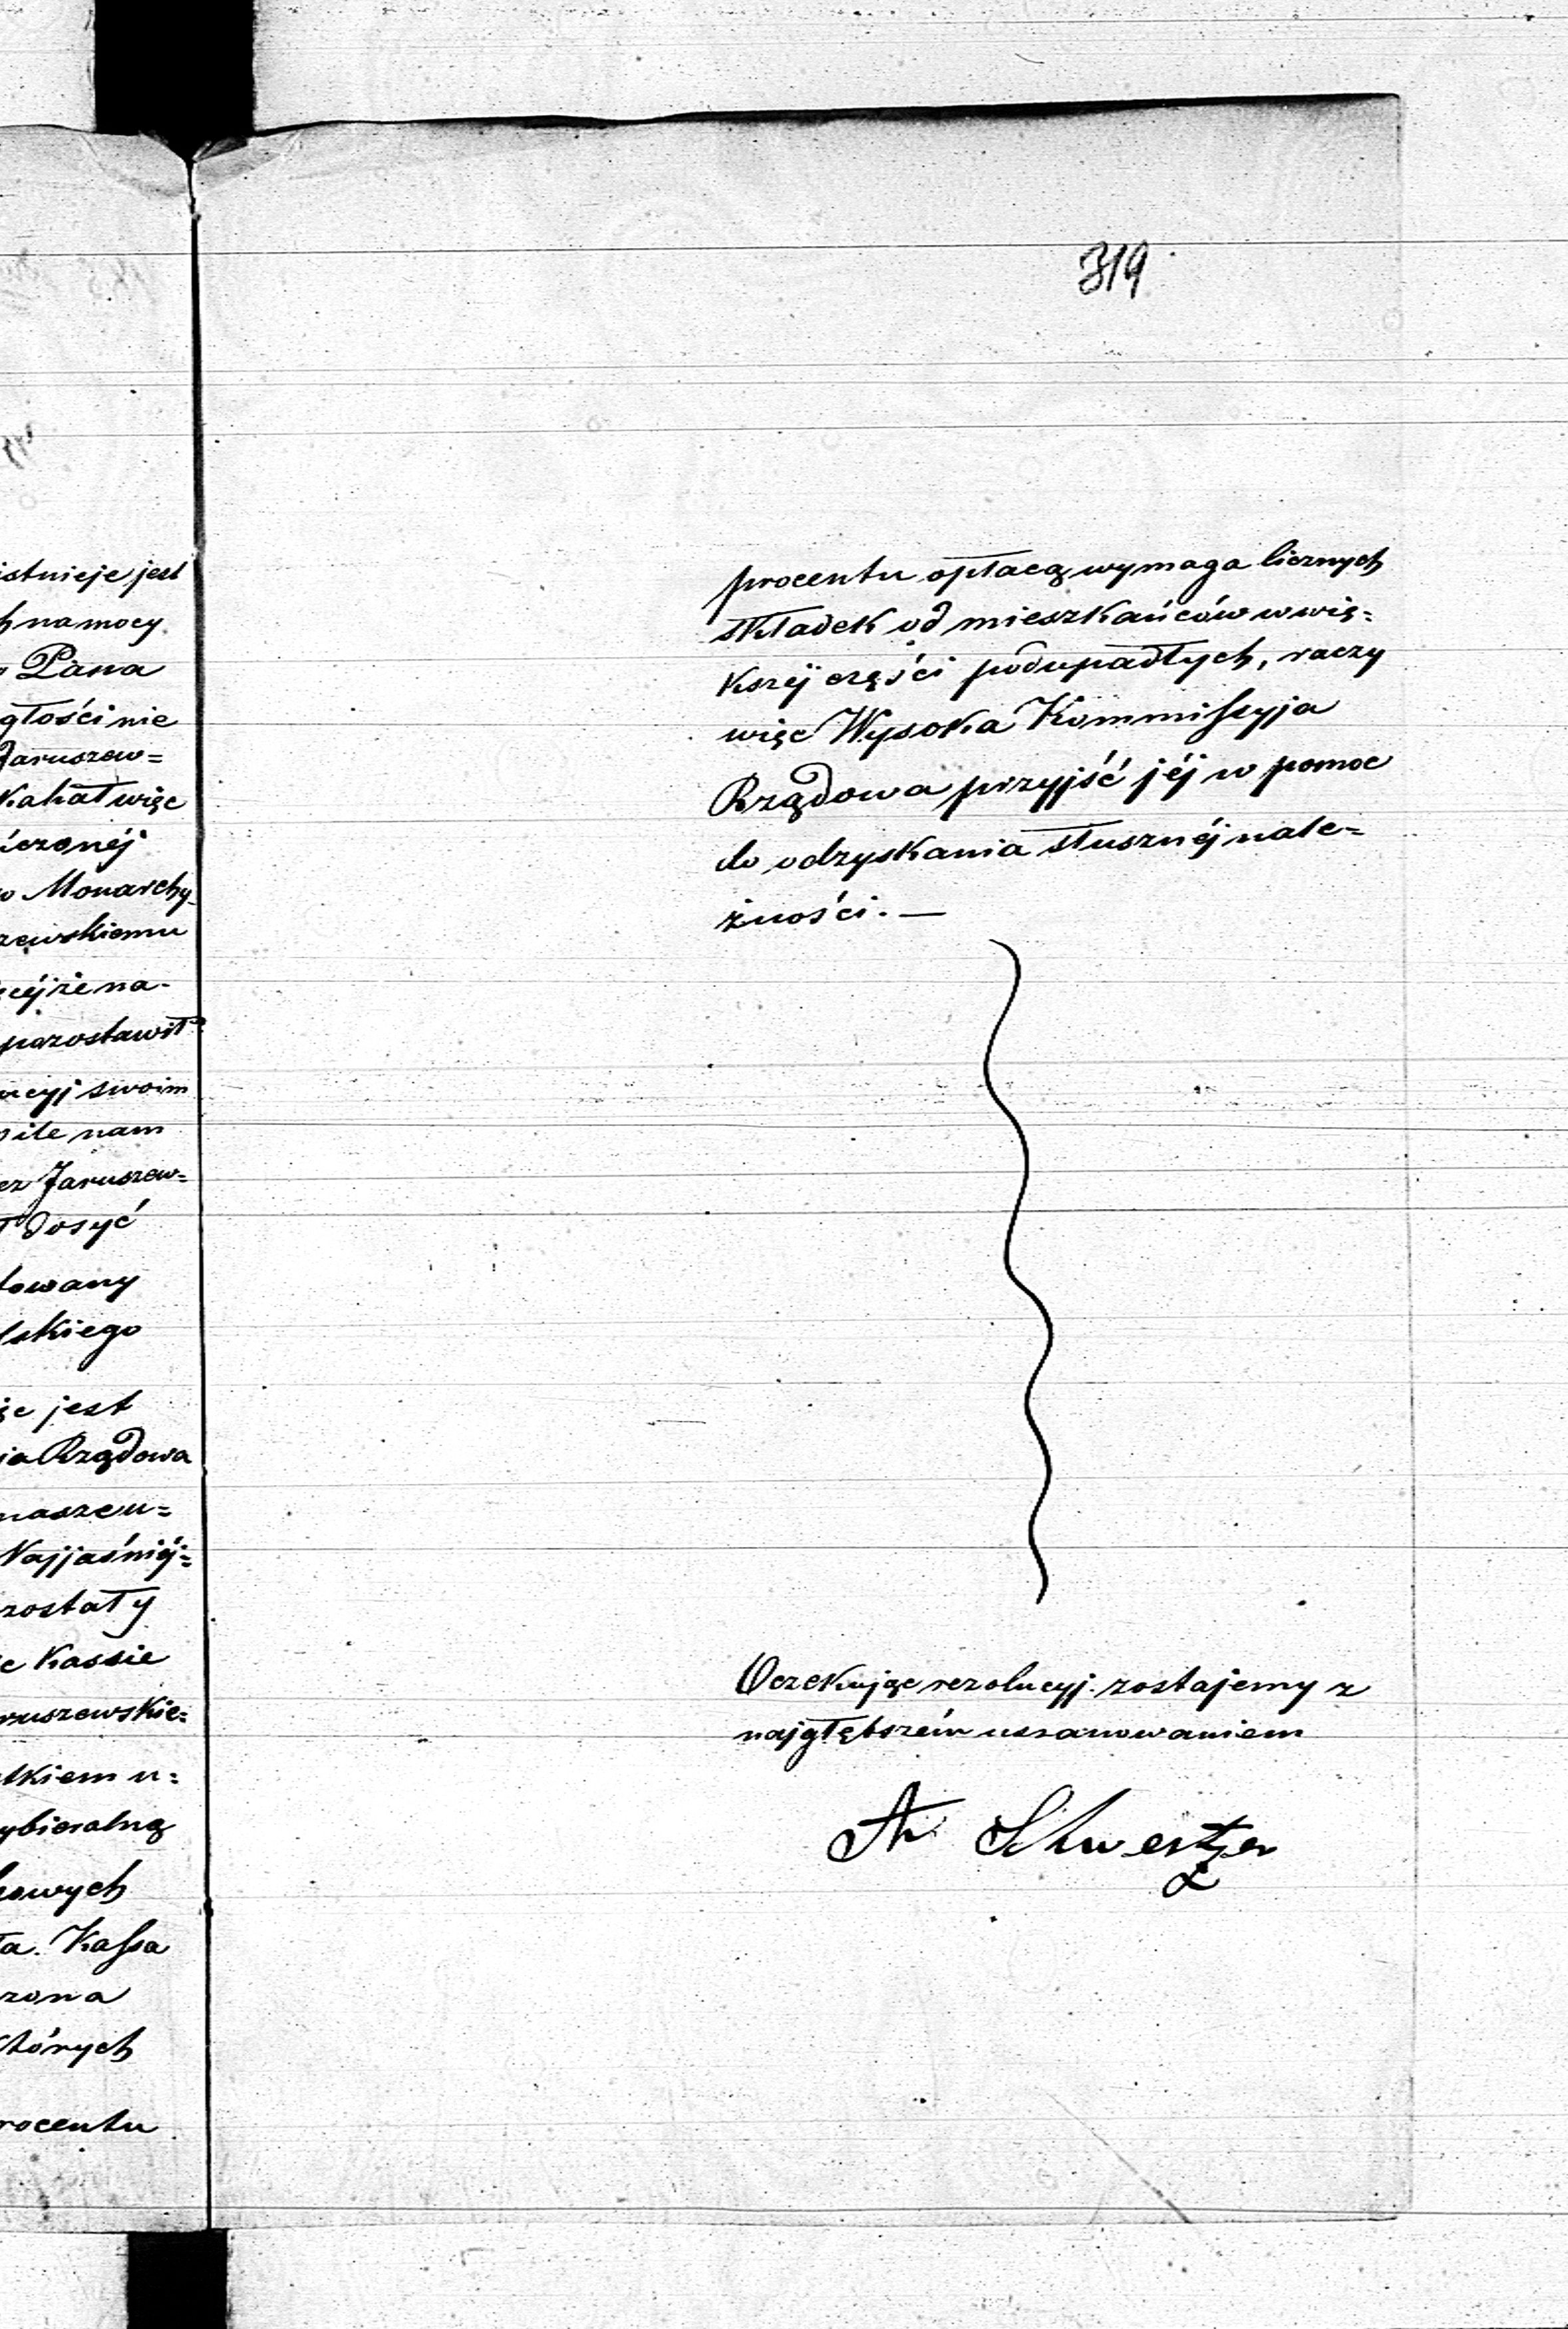 istnieje jest
h na mocy
Pana
głości nie
Jaruszew=
Kahał więc
iczonéj
Monarchy
zewskiemu
céj że na-
pozostawił
ucyj swoim
ile nam
ez Jaruszew=
ł dosyć
towany
lskiego
jest
ia Rządowa
naszeu=
Najjaśniéj=
zostały
Kassie
ruszewskie=
tkiem u=
ybieralną
kowych
ła. Kassa
zona
których
rocentu
319
procentu opłacą wymaga licznych
składek od mieszkańców w wię=
kszéj części podupadłych, raczy
więc Wysoka Kommissyja
Rządowa przyjść jéj w pomoc
do odzyskania słusznéj nale=
żności. —
Oczekując rezolucyj zostajemy z
najgłębszém uszanowaniem